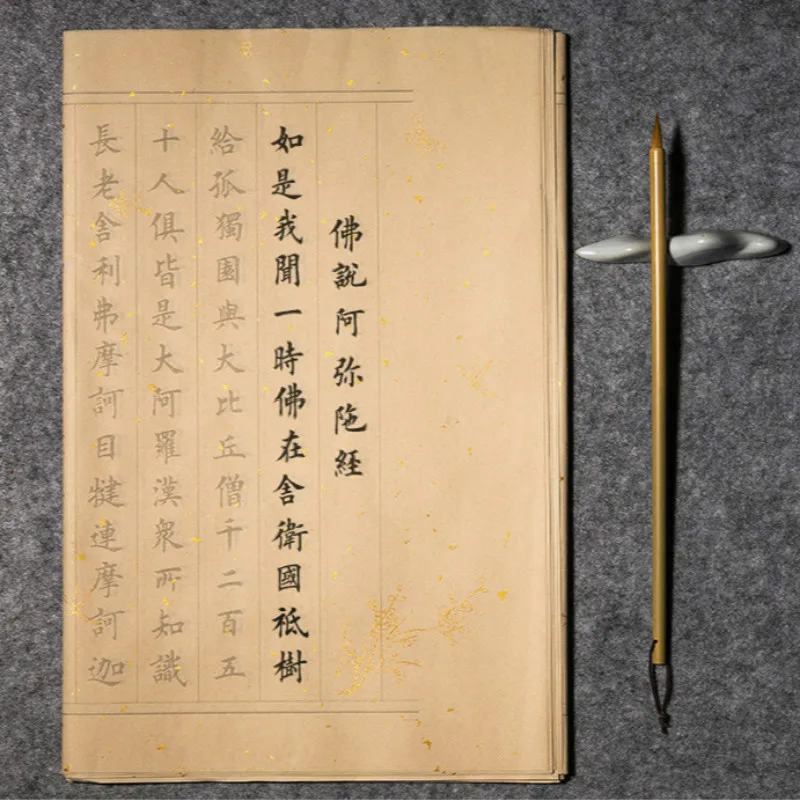 佛說阿弥陁經
如是我聞一時佛在舍衛國祇樹
給孤獨園與大比丘僧千二百五
十人俱皆是大阿羅漢衆所知識
長老舍利弗摩訶目犍連摩訶迦